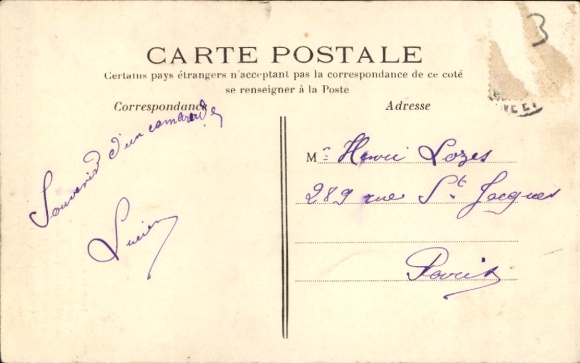 3
CARTE POSTALE
Certains pays étrangers n'acceptant pas la correspondance de ce coté
se renseigner à la Poste
Correspondance
Adresse
Souvenir d'un camarade
Lucien
Mr Henri Lozes
289 rue St. Jacques
Paris